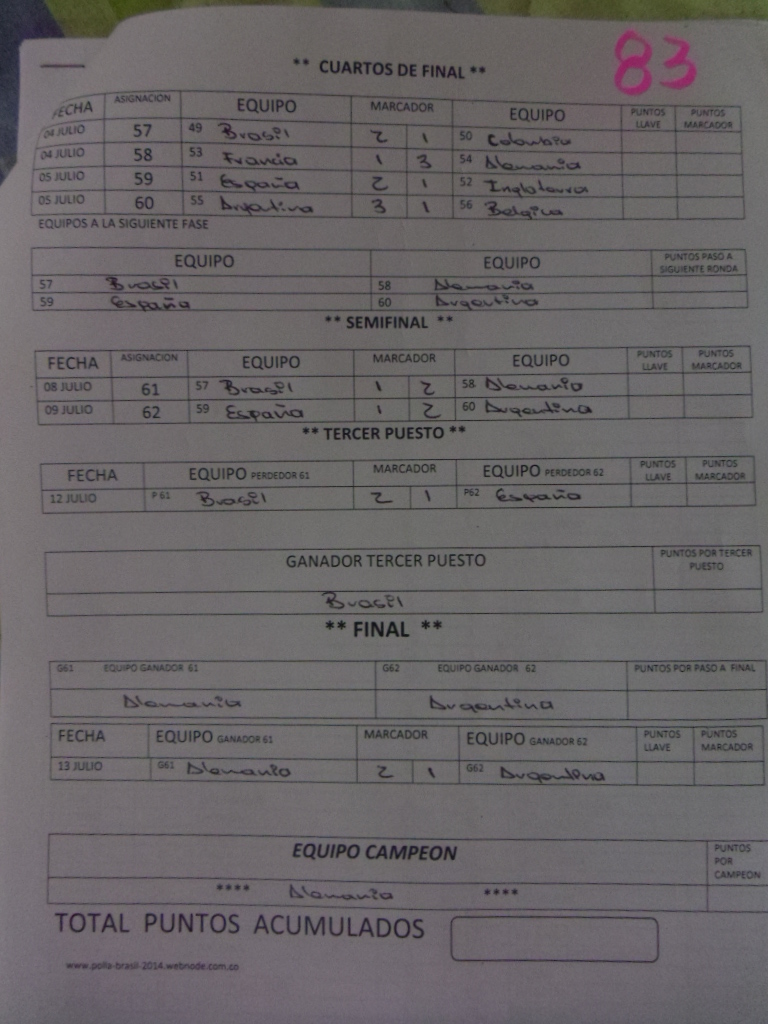 83
** CUARTOS DE FINAL **
FECHA ASIGNACION EQUIPO MARCADOR EQUIPO PUNTOS LLAVE PUNTOS MARCADOR
04 JULIO 57 49 Brasil 2 1 50 Colombia
04 JULIO 58 53 Francia 1 3 54 Alemania
05 JULIO 59 51 España 2 1 52 Inglaterra
05 JULIO 60 55 Argentina 3 1 56 Belgica
EQUIPOS A LA SIGUIENTE FASE
EQUIPO EQUIPO PUNTOS PASO A SIGUIENTE RONDA
57 Brasil 58 Alemania
59 España 60 Argentina
** SEMIFINAL **
FECHA ASIGNACION EQUIPO MARCADOR EQUIPO PUNTOS LLAVE PUNTOS MARCADOR
08 JULIO 61 57 Brasil 1 2 58 Alemania
09 JULIO 62 59 España 1 2 60 Argentina
** TERCER PUESTO **
FECHA EQUIPO PERDEDOR 61 MARCADOR EQUIPO PERDEDOR 62 PUNTOS LLAVE PUNTOS MARCADOR
12 JULIO P 61 Brasil 2 1 P62 España
GANADOR TERCER PUESTO PUNTOS POR TERCER PUESTO
Brasil
** FINAL **
G61 EQUIPO GANADOR 61 G62 EQUIPO GANADOR 62 PUNTOS POR PASO A FINAL
Alemania Argentina
FECHA EQUIPO GANADOR 61 MARCADOR EQUIPO GANADOR 62 PUNTOS LLAVE PUNTOS MARCADOR
13 JULIO G61 Alemania 2 1 G62 Argentina
EQUIPO CAMPEON PUNTOS POR CAMPEON
**** Alemania ****
TOTAL PUNTOS ACUMULADOS
www.polla-brasil-2014.webnode.com.co